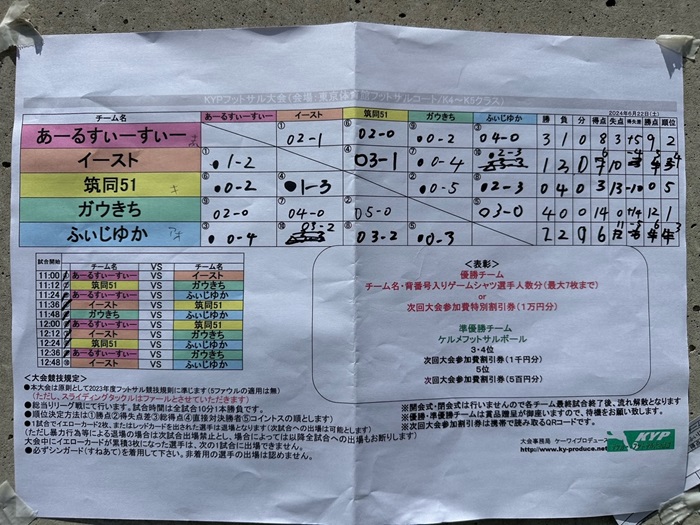 KYPフットサル大会(会場:東京体育館フットサルコート/K4～K5クラス)
2024年6月22日(土)
チーム名 あーるすぃーすぃー イースト 筑同51 ガウきち ふぃじゆか 勝 負 分 得点 失点 得失差 勝点 順位
あーるすぃーすぃー ① 02-1 ⑥ 02-0 ⑨ ●0-2 ③ 04-0 3 1 0 8 3 +5 9 2
イースト ① ●1-2 ④ 03-1 ⑦ ●0-4 ⑩
筑同51 ⑥ ●0-2 ④ ●1-3 ② ●0-5 ⑧ ●2-3 0 4 0 3 13 -10 0 5
ガウきち ⑨ 02-0 ⑦ 04-0 ② 05-0 ⑤ 03-0 4 0 0 14 0 +14 12 1
ふぃじゆか ③ ●0-4 ⑩ 03-2 ⑧ 03-2 ⑤ ●0-3 2 2 0 6
試合開始 チーム名 VS チーム名
11:00 あーるすぃーすぃー VS イースト
11:12 筑同51 VS ガウきち
11:24 あーるすぃーすぃー VS ふぃじゆか
11:36 イースト VS 筑同51
11:48 ガウきち VS ふぃじゆか
12:00 あーるすぃーすぃー VS 筑同51
12:12 イースト VS ガウきち
12:24 筑同51 VS ふぃじゆか
12:36 あーるすぃーすぃー VS ガウきち
12:48 イースト VS ふぃじゆか
＜表彰＞
優勝チーム
チーム名・背番号入りゲームシャツ選手人数分(最大7枚まで)
or
次回大会参加費特別割引券(1万円分)
準優勝チーム
ケルメフットサルボール
3・4位
次回大会参加費割引券(1千円分)
5位
次回大会参加費割引券(5百円分)
＜大会競技規定＞
●本大会は原則として2023年度フットサル競技規則に準じます(5ファウルの適用は無)
(ただし、スライディングタックルはファールとさせていただきます)
●総当りリーグ戦にて行います。試合時間は全試合10分1本勝負です。
●順位決定方法は①勝点②得失点差③総得点④直接対決勝者⑤コイントスの順とします)
●1試合でイエローカード2枚、またはレッドカードを出された選手は退場となります(次試合への出場は可能とします)
(ただし暴力行為等による退場の場合は次試合出場禁止とし、場合によっては以降全試合への出場もお断りします)
大会中にイエローカードが累積3枚になった選手は、次の1試合に出場できません。
●必ずシンガード(すねあて)を着用して下さい。非着用の選手の出場は認めません。
※開会式・閉会式は行いませんので各チーム最終試合終了後、流れ解散となります
※優勝・準優勝チームは賞品贈呈が御座いますので、待機をお願い致します。
※次回大会参加費割引券は携帯で読み取るQRコードです。
大会事務局 ケーワイプロデュース
http://www.ky-produce.net
KYP